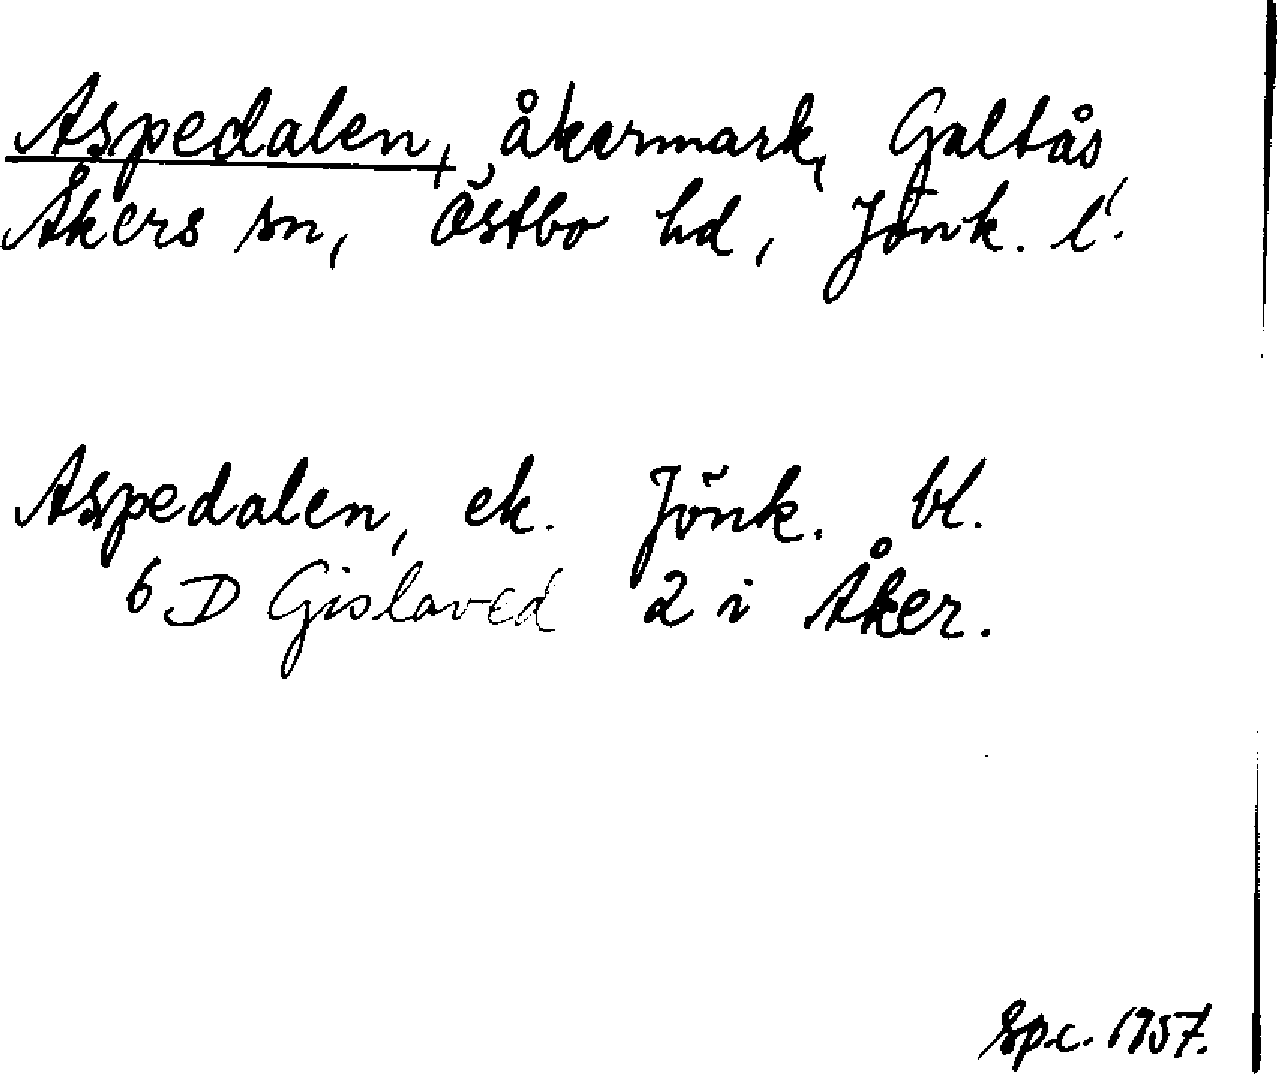 Aspedalen, åkermark, Galtås
Åkers sn, Östbo hd, Jönk. l.
Aspedalen, ek. Jönk. bl.
6 D Gislaved 2 i Åker.
Spc. 1957.